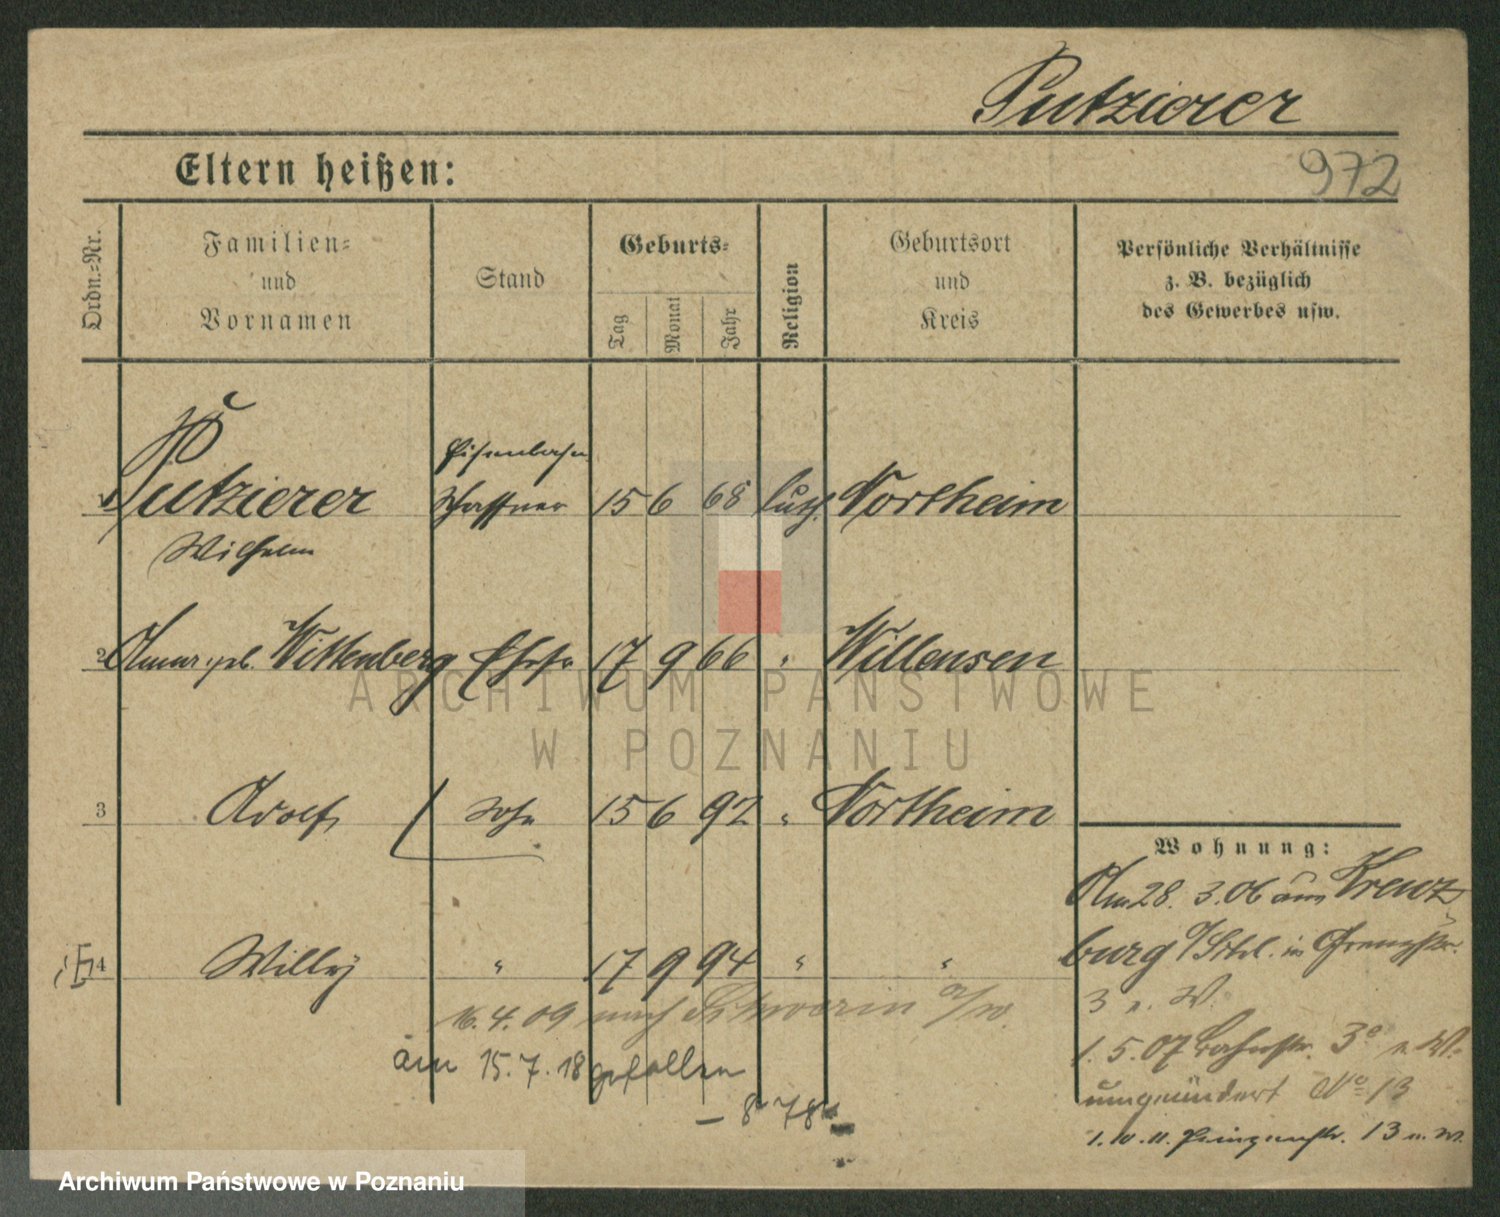 Putzierer
Eltern heißen:
972
Ordn.=Nr.
Familien=
und
Vornamen
Stand
Geburts=
Tag
Monat
Jahr
Religion
Geburtsort
und
Kreis
Persönliche Verhältnisse
z. B. bezüglich
des Gewerbes usw.
1 Putzierer Eisenbahn 15 6 68 luth. Northeim
Schaffner
Wilhelm
2 geb. Wittenberg Ehefr 17 9 66 " Willensen
3 Adolf Sohn 15 6 92 " Northeim
4 Willy " 17 9 94 " "
16.4.09 nach Schwerin a/W.
am 15.7.18 gefallen
- 8 78
Wohnung:
Am 28. 3. 06 aus Kreuz
burg in Grenzstr.
3 n. W.
1. 5. 07 Bahnstr. 3 n. W.
umgeändert No 13
1. 10. 11. 13 n. W.
ARCHIWUM PAŃSTWOWE
W POZNANIU
Archiwum Państwowe w Poznaniu